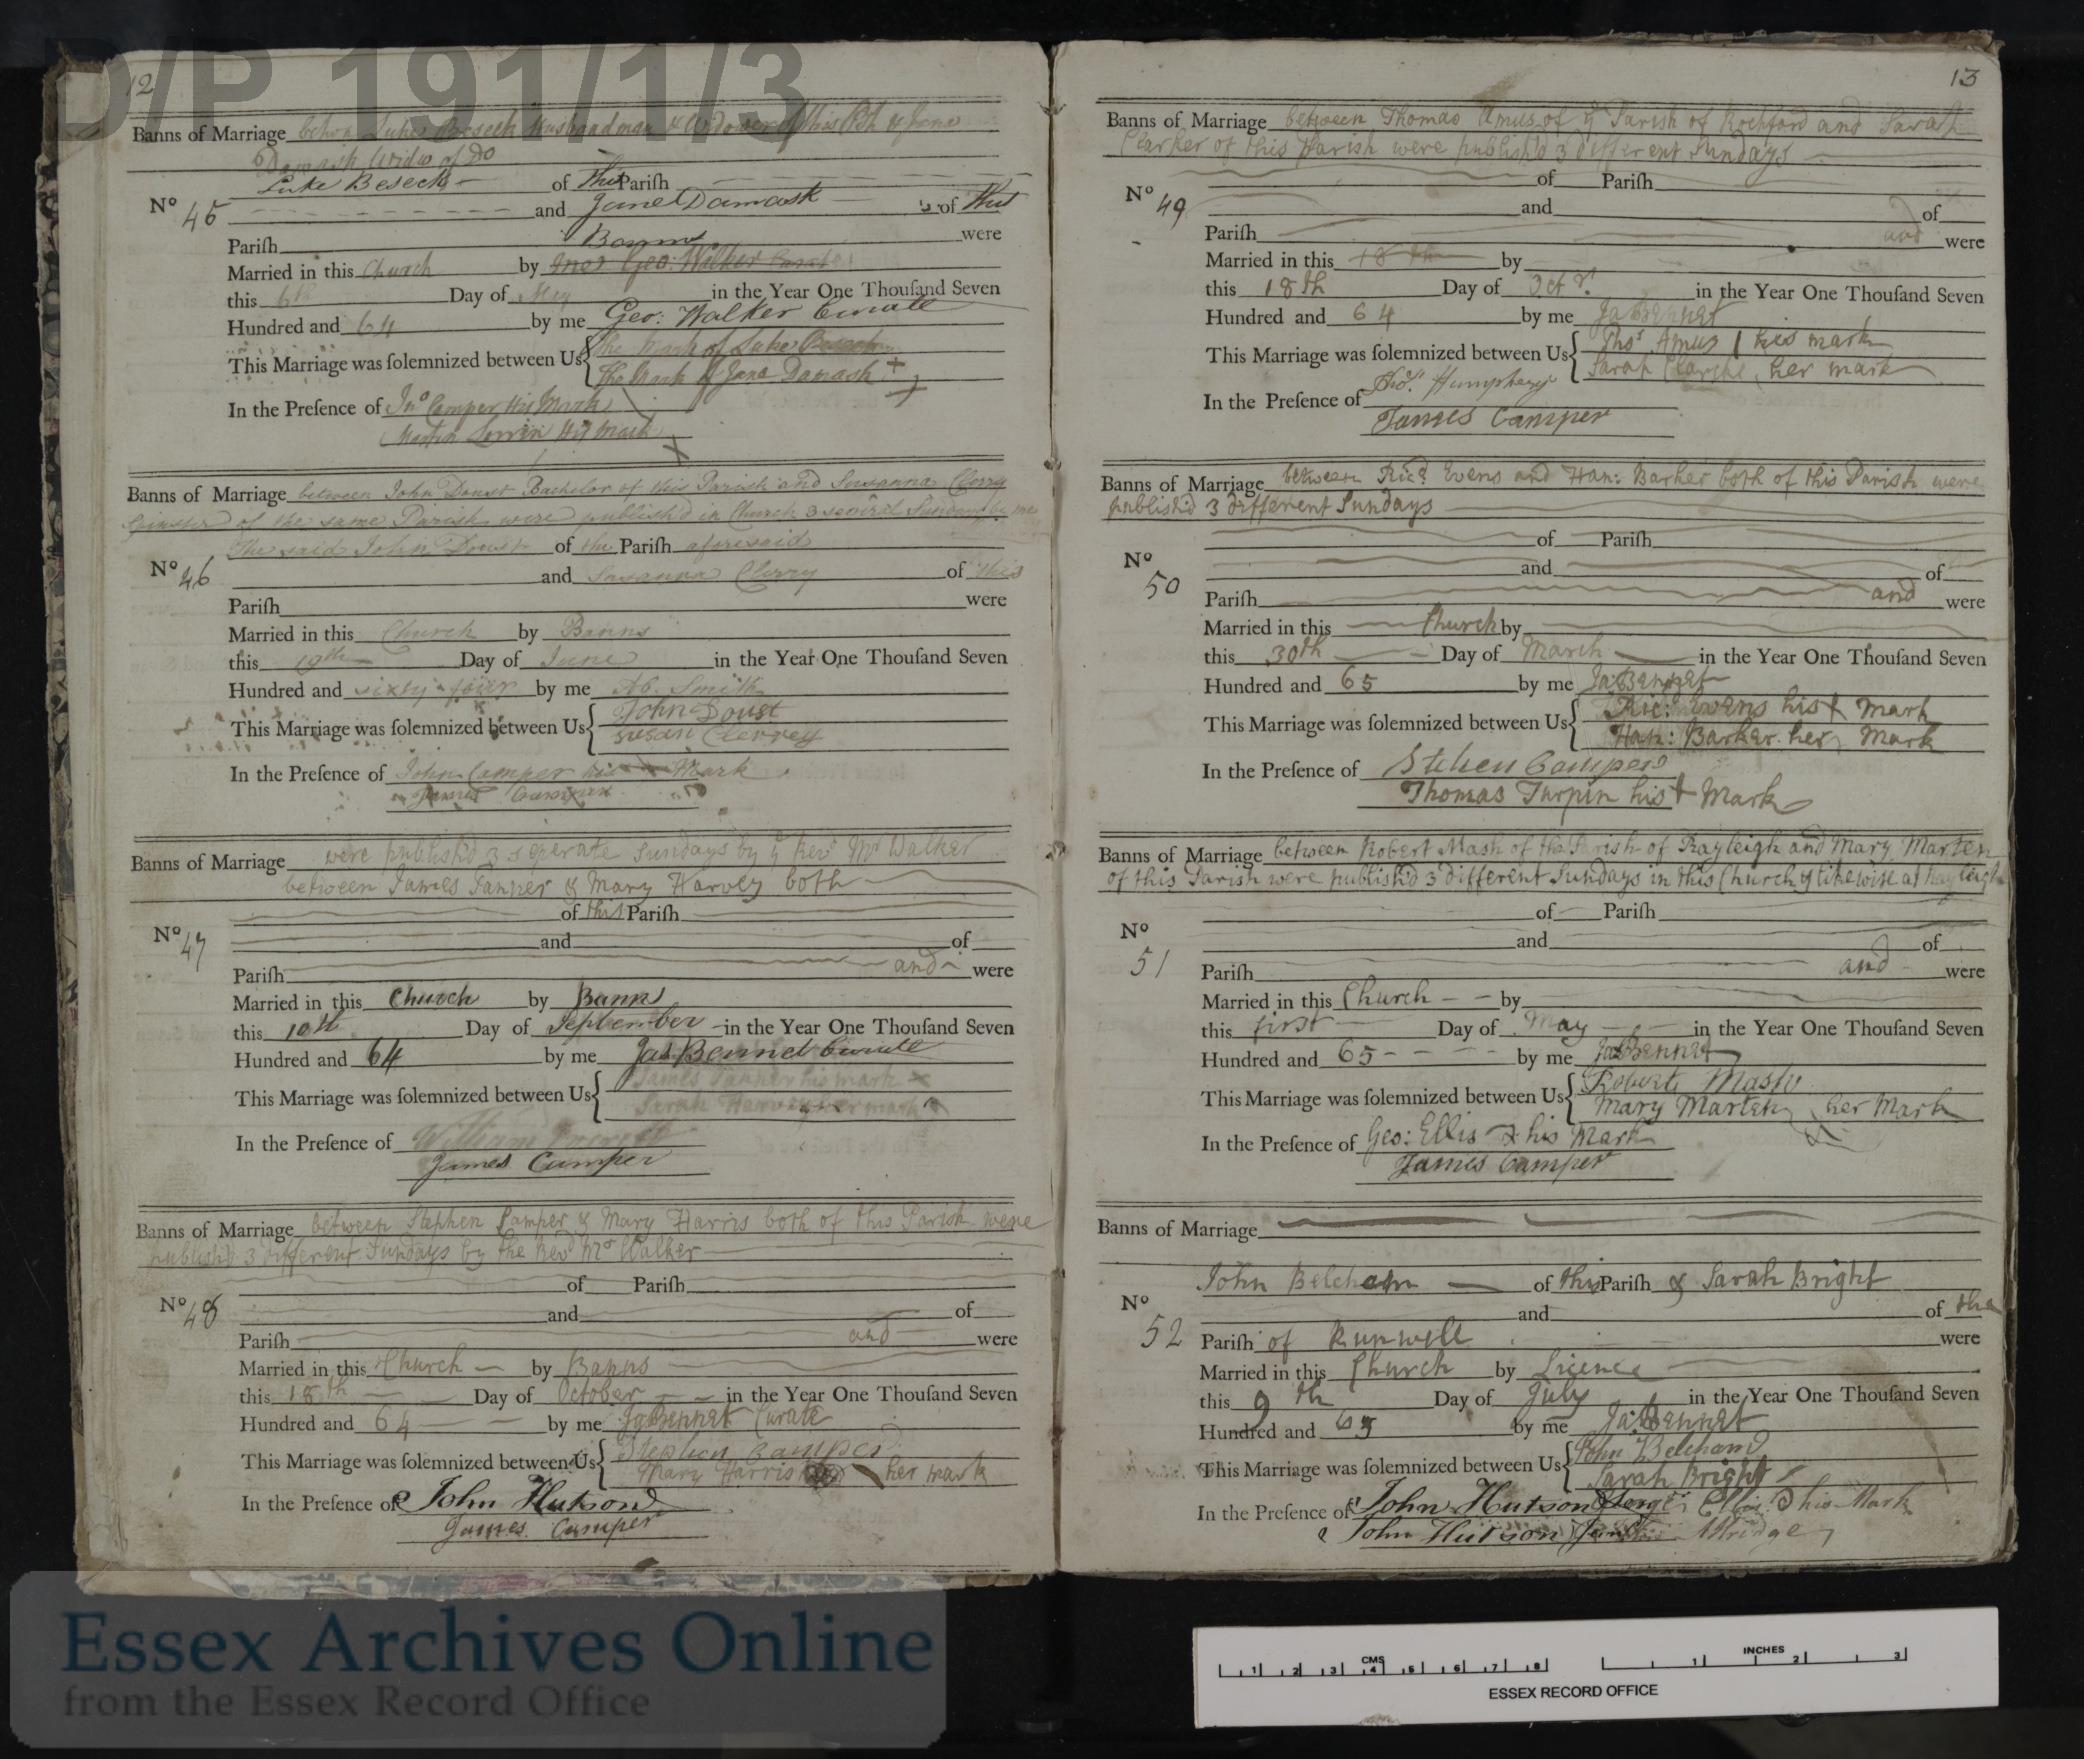 D/P 191/1/3
12
Banns of Marriage betwn Luke Beseck Husbandman & Widower of this Psh & Jane
Damask Widw of Do
Luke Beseck of this Pariſh
No 45
and Jane Damask of this
Pariſh Banns were
Married in this Church by me Geo: Walker Curate
this 6th Day of May in the Year One Thouſand Seven
Hundred and 64 by me Geo: Walker Curate
This Marriage was ſolemnized between Us The Mark of Luke Beseck
The Mark of Jane Damask +
In the Preſence of Jno Camper His Mark
Martin His Mark X
Banns of Marriage between John Doust Bachelor of this Parish and Susanna Clerry
Spinster of the same Parish were publish'd in Church 3 several Sundays by me
The said John Doust of the Pariſh aforesaid
No 46
and Susanna Clerry of this
Pariſh were
Married in this Church by Banns
this 19th Day of June in the Year One Thouſand Seven
Hundred and sixty-four by me Ab. Smith
This Marriage was ſolemnized between Us John Doust
Susan Clerrey
In the Preſence of John Camper his x Mark
James Camper
Banns of Marriage were publish'd 3 seperate Sundays by ye Revd Mr Walker
between James Tanner & Mary Harvey both
of this Pariſh
No 47
and of
Pariſh and were
Married in this Church by Banns
this 10th Day of September in the Year One Thouſand Seven
Hundred and 64 by me Jas Bennet Curate
This Marriage was ſolemnized between Us James Tanner his mark x
Sarah Harvey her mark
In the Preſence of William
James Camper
Banns of Marriage between Stephen Camper & Mary Harris both of this Parish were
publish'd 3 different Sundays by the Revd Mr Walker
of Pariſh
No 48
and of
Pariſh and were
Married in this Church by Banns
this 18th Day of October in the Year One Thouſand Seven
Hundred and 64 by me Ja: Bennet Curate
This Marriage was ſolemnized between Us Stephen Camper
Mary Harris her mark
In the Preſence of John Hutson
James Camper
13
Banns of Marriage between Thomas Amus of ye Parish of Rochford and Sarah
Clarke of this Parish were publish'd 3 different Sundays
of Pariſh
No 49
and of
Pariſh and were
Married in this 18th by
this 18th Day of Octr. in the Year One Thouſand Seven
Hundred and 64 by me Ja Bennet
This Marriage was ſolemnized between Us Thos Amus his mark
Sarah Clarke her mark
In the Preſence of Thos. Humphrey
James Camper
Banns of Marriage between Ricd. Evens and Han: Barker both of this Parish were
publish'd 3 different Sundays
of Pariſh
No 50
and of
Pariſh and were
Married in this Church by
this 30th Day of March in the Year One Thouſand Seven
Hundred and 65 by me Ja: Bennet
This Marriage was ſolemnized between Us Ric: Evens his + Mark
Han: Barker her Mark
In the Preſence of Stehen Camper
Thomas Turpin his + Mark
Banns of Marriage between Robert Mash of the Parish of Rayleigh and Mary Marten
of this Parish were publish'd 3 different Sundays in this Church & likewise at Rayleigh
of Pariſh
No 51
and of
Pariſh and were
Married in this Church by
this first Day of May in the Year One Thouſand Seven
Hundred and 65 by me Ja Bennet
This Marriage was ſolemnized between Us Robert Mash
Mary Marten her Mark
In the Preſence of Geo: Ellis x his Mark
James Camper
Banns of Marriage
John Belcham of this Pariſh & Sarah Bright
No 52
and of the
Pariſh of Runwell were
Married in this Church by Licence
this 9th Day of July in the Year One Thouſand Seven
Hundred and 65 by me Ja: Bennet
This Marriage was ſolemnized between Us John Belcham
Sarah Bright
In the Preſence of John Hutson George Ellis his Mark
John Hutson Aldridge
Essex Archives Online
from the Essex Record Office
CMS
1 2 3 4 5 6 7 8
INCHES
1 2 3
ESSEX RECORD OFFICE